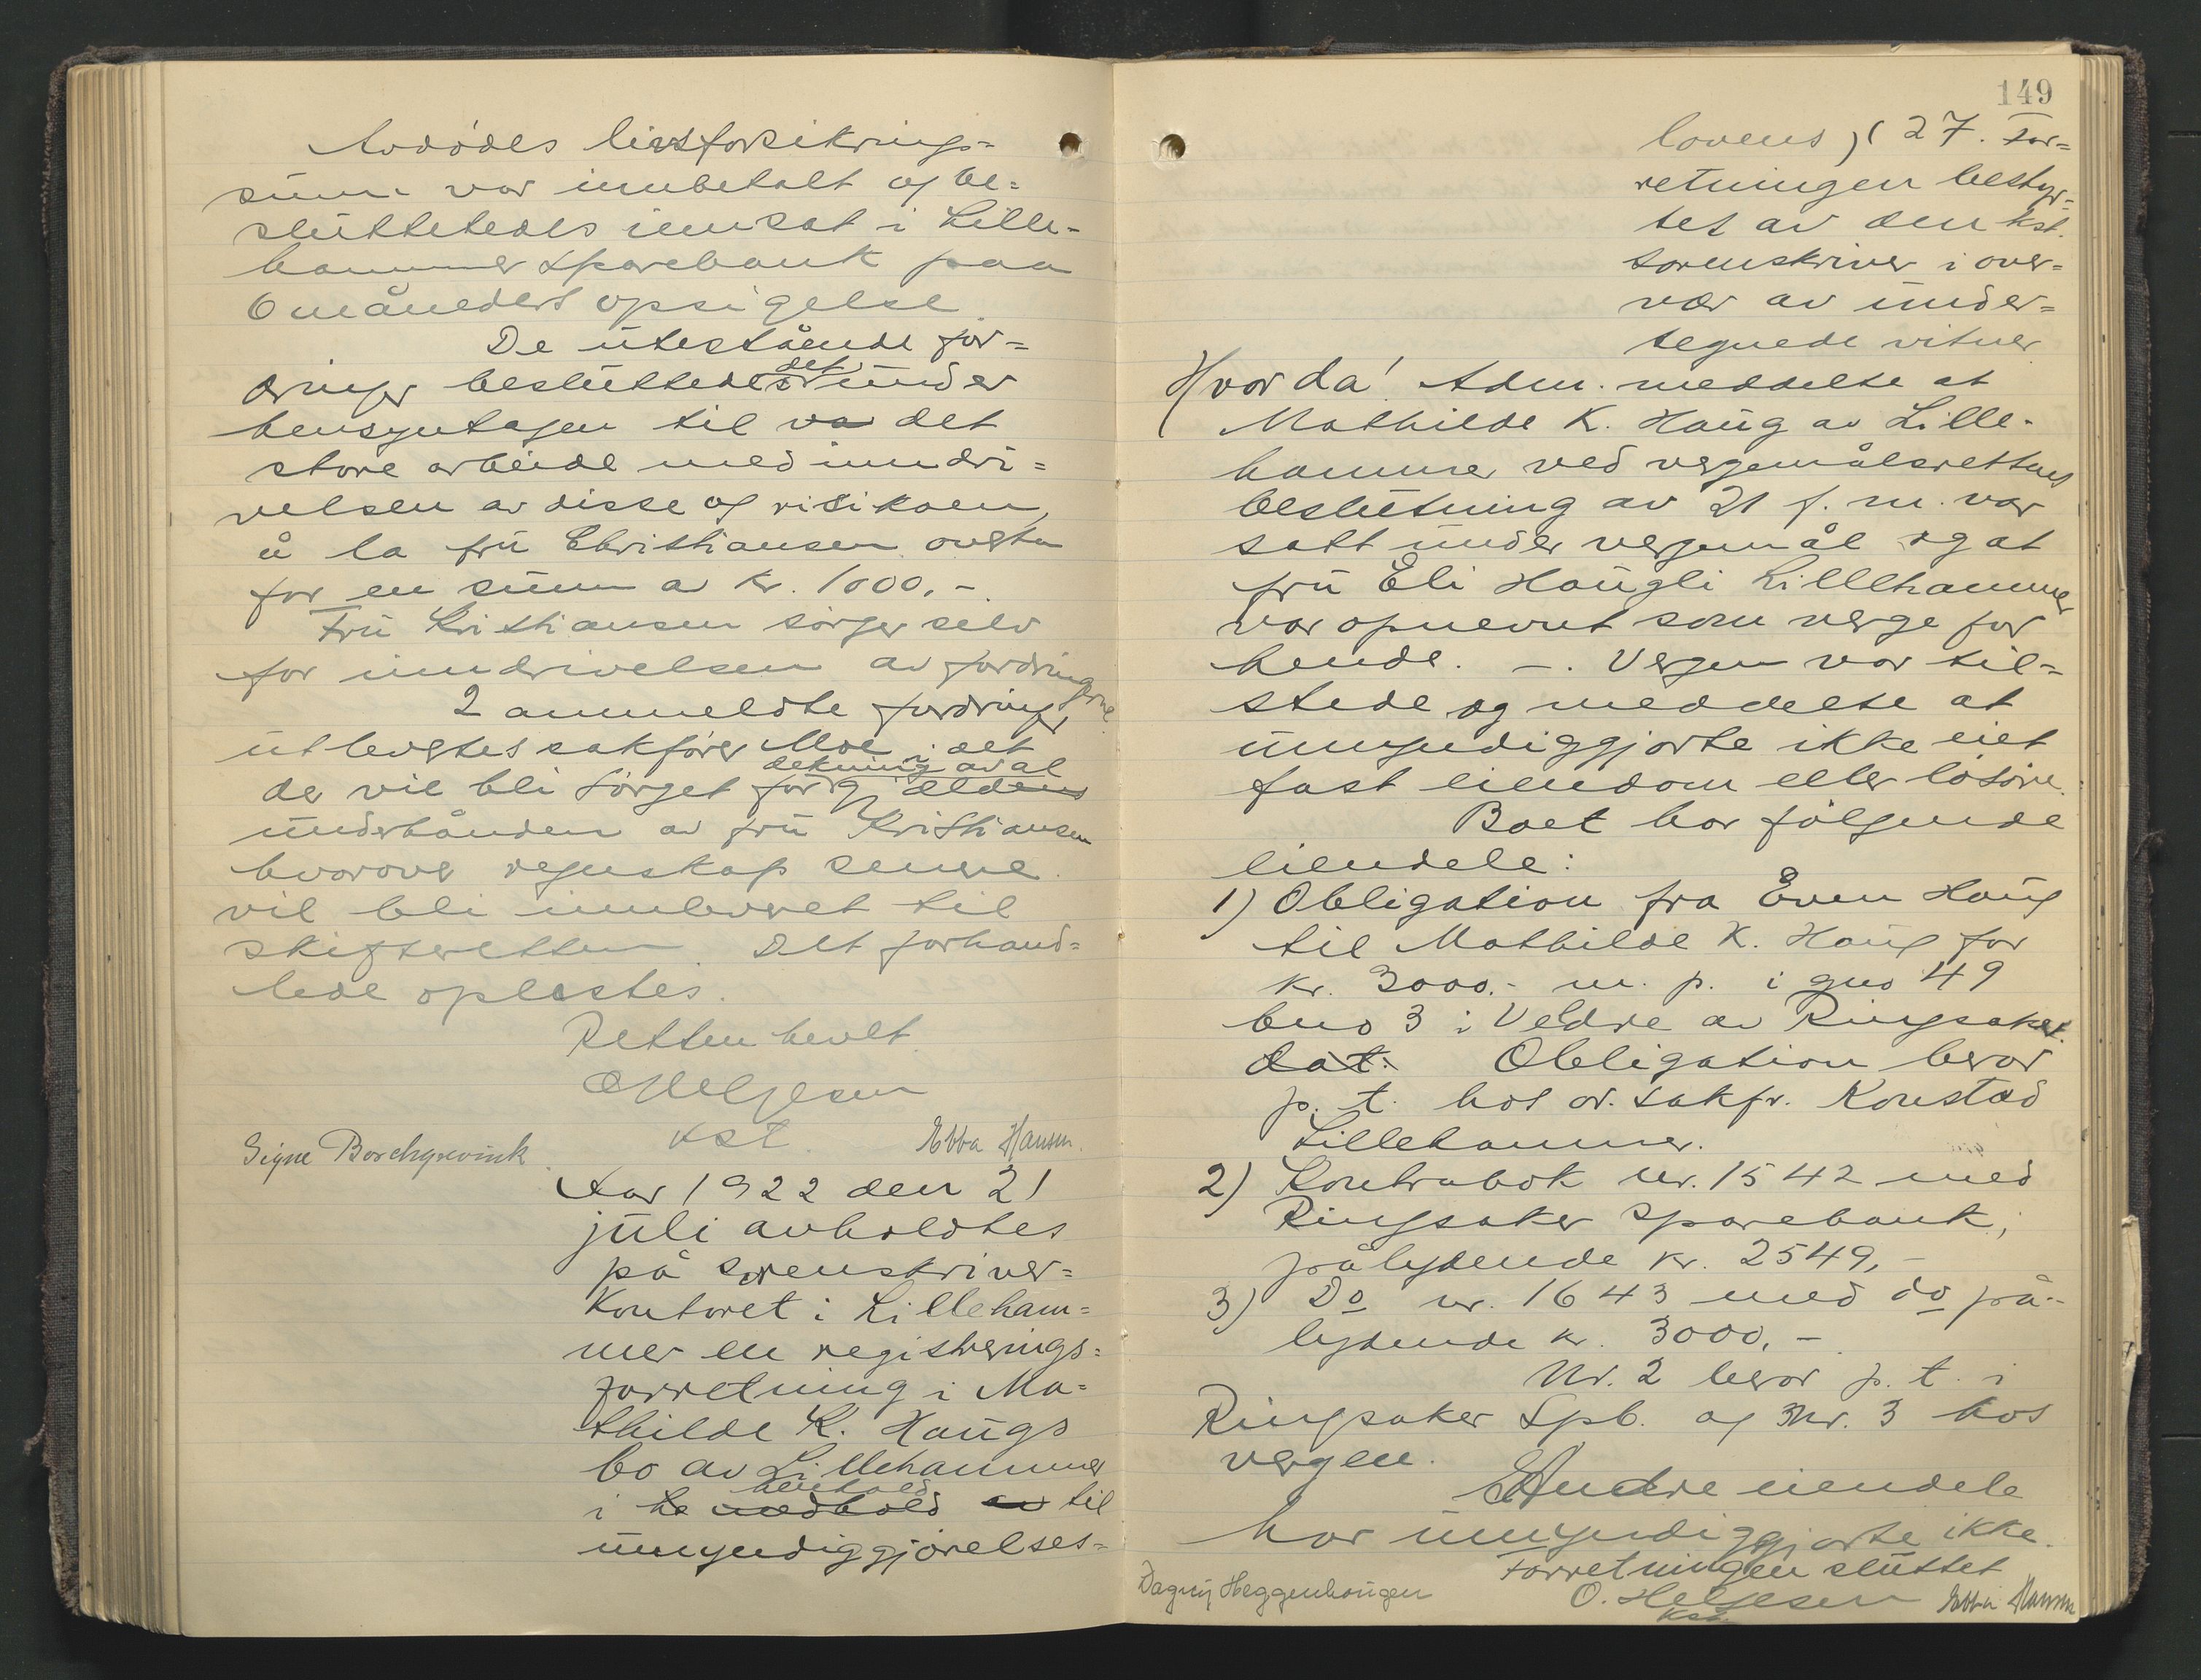 Avdødes livsforsikrings=
sum var innbetalt og be=
sluttetedes innsat i Lille=
hammer Sparebank paa
6 måneders opsigelse.
De utestående for=
dringer besluttedes det under
hensyntagen til va det
store arbeide med inndri=
velsen av disse og risikoen,
å la fru Christiansen overta
for en sum av kr. 1000.-
Fru Kristiansen sørger selv
for inndrivelsen av fordringerne
2 anmeldte fordringer
utleveres sakfører Moe, i det
dekning av al
der vil bli sørget for gjeldens
underhånden av fru Kristiansen
hvorover regnskap senere
vil bli innlevert til
skifteretten. Det forhand=
lede oplestes.
Retten hevet.
O Helgesen
kst.
Signe Borchgrevink Ebba Hansen.
Aar 1922 den 21
juli avholdtes
på sorenskriver=
kontoret i Lilleham=
mer en registrerings=
forretning i Ma=
thilde K. Haugs
bo av Lillehammer
henhold
i he medhold av til
umyndiggjørelses=
149
lovens § 27. For=
retningen bestyr=
tes av den kst.
sorenskriver i over=
vær av under=
tegnede vitner
Hvorda! Adm. meddelte at
Mathilde K. Haug av Lille=
hammer ved vergemålsrettens
beslutning av 21 f. m. var
satt under vergemål og at
fru Eli Haugli Lillehammer
var opnevnt som verge for
hende. -. Vergen var til=
stede og meddelte at
umyndiggjorte ikke eiet
fast eiendom eller løsøre.
Boet har følgende
eiendele:
1) Obligation fra Even Haug
til Mathilde K. Haug for
kr. 3000.- m. p. i gno 49
bno 3 i Veldre av Ringsaker.
dat. Obligation beror
p. t. hos or. sakfr. Konstad
Lillehammer.
2) Kontrabok nr. 1542 med
Ringsaker Sparebank,
pålydende kr. 2549,-
3) Do nr. 1643 med do på=
lydende kr. 3000.-
Nr. 2 beror p. t. i
Ringsaker Spb. og Nr. 3 hos
vergen.
Andre eiendele
har umyndiggjorte ikke.
Forretningen sluttet
Dagny Heggenhougen O. Helgesen Ebba Hansen
kst.